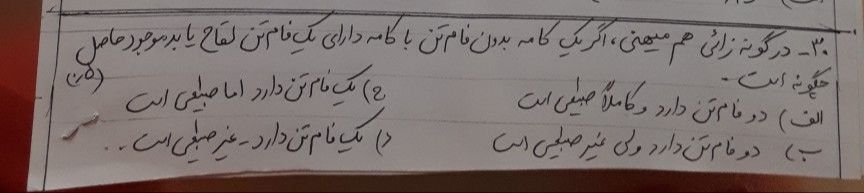 ۳۰- در گونه زائی هم میهنی، اگر یک کامه بدون فام تن با کامه دارای یک فام تن لقاح یابد موجود حاصل
چگونه است. (۰/۵)
الف) دو فام تن دارد و کاملاً طبیعی است ج) یک فام تن دارد اما طبیعی است
ب) دو فام تن دارد ولی غیر طبیعی است د) یک فام تن دارد - غیر طبیعی است . .